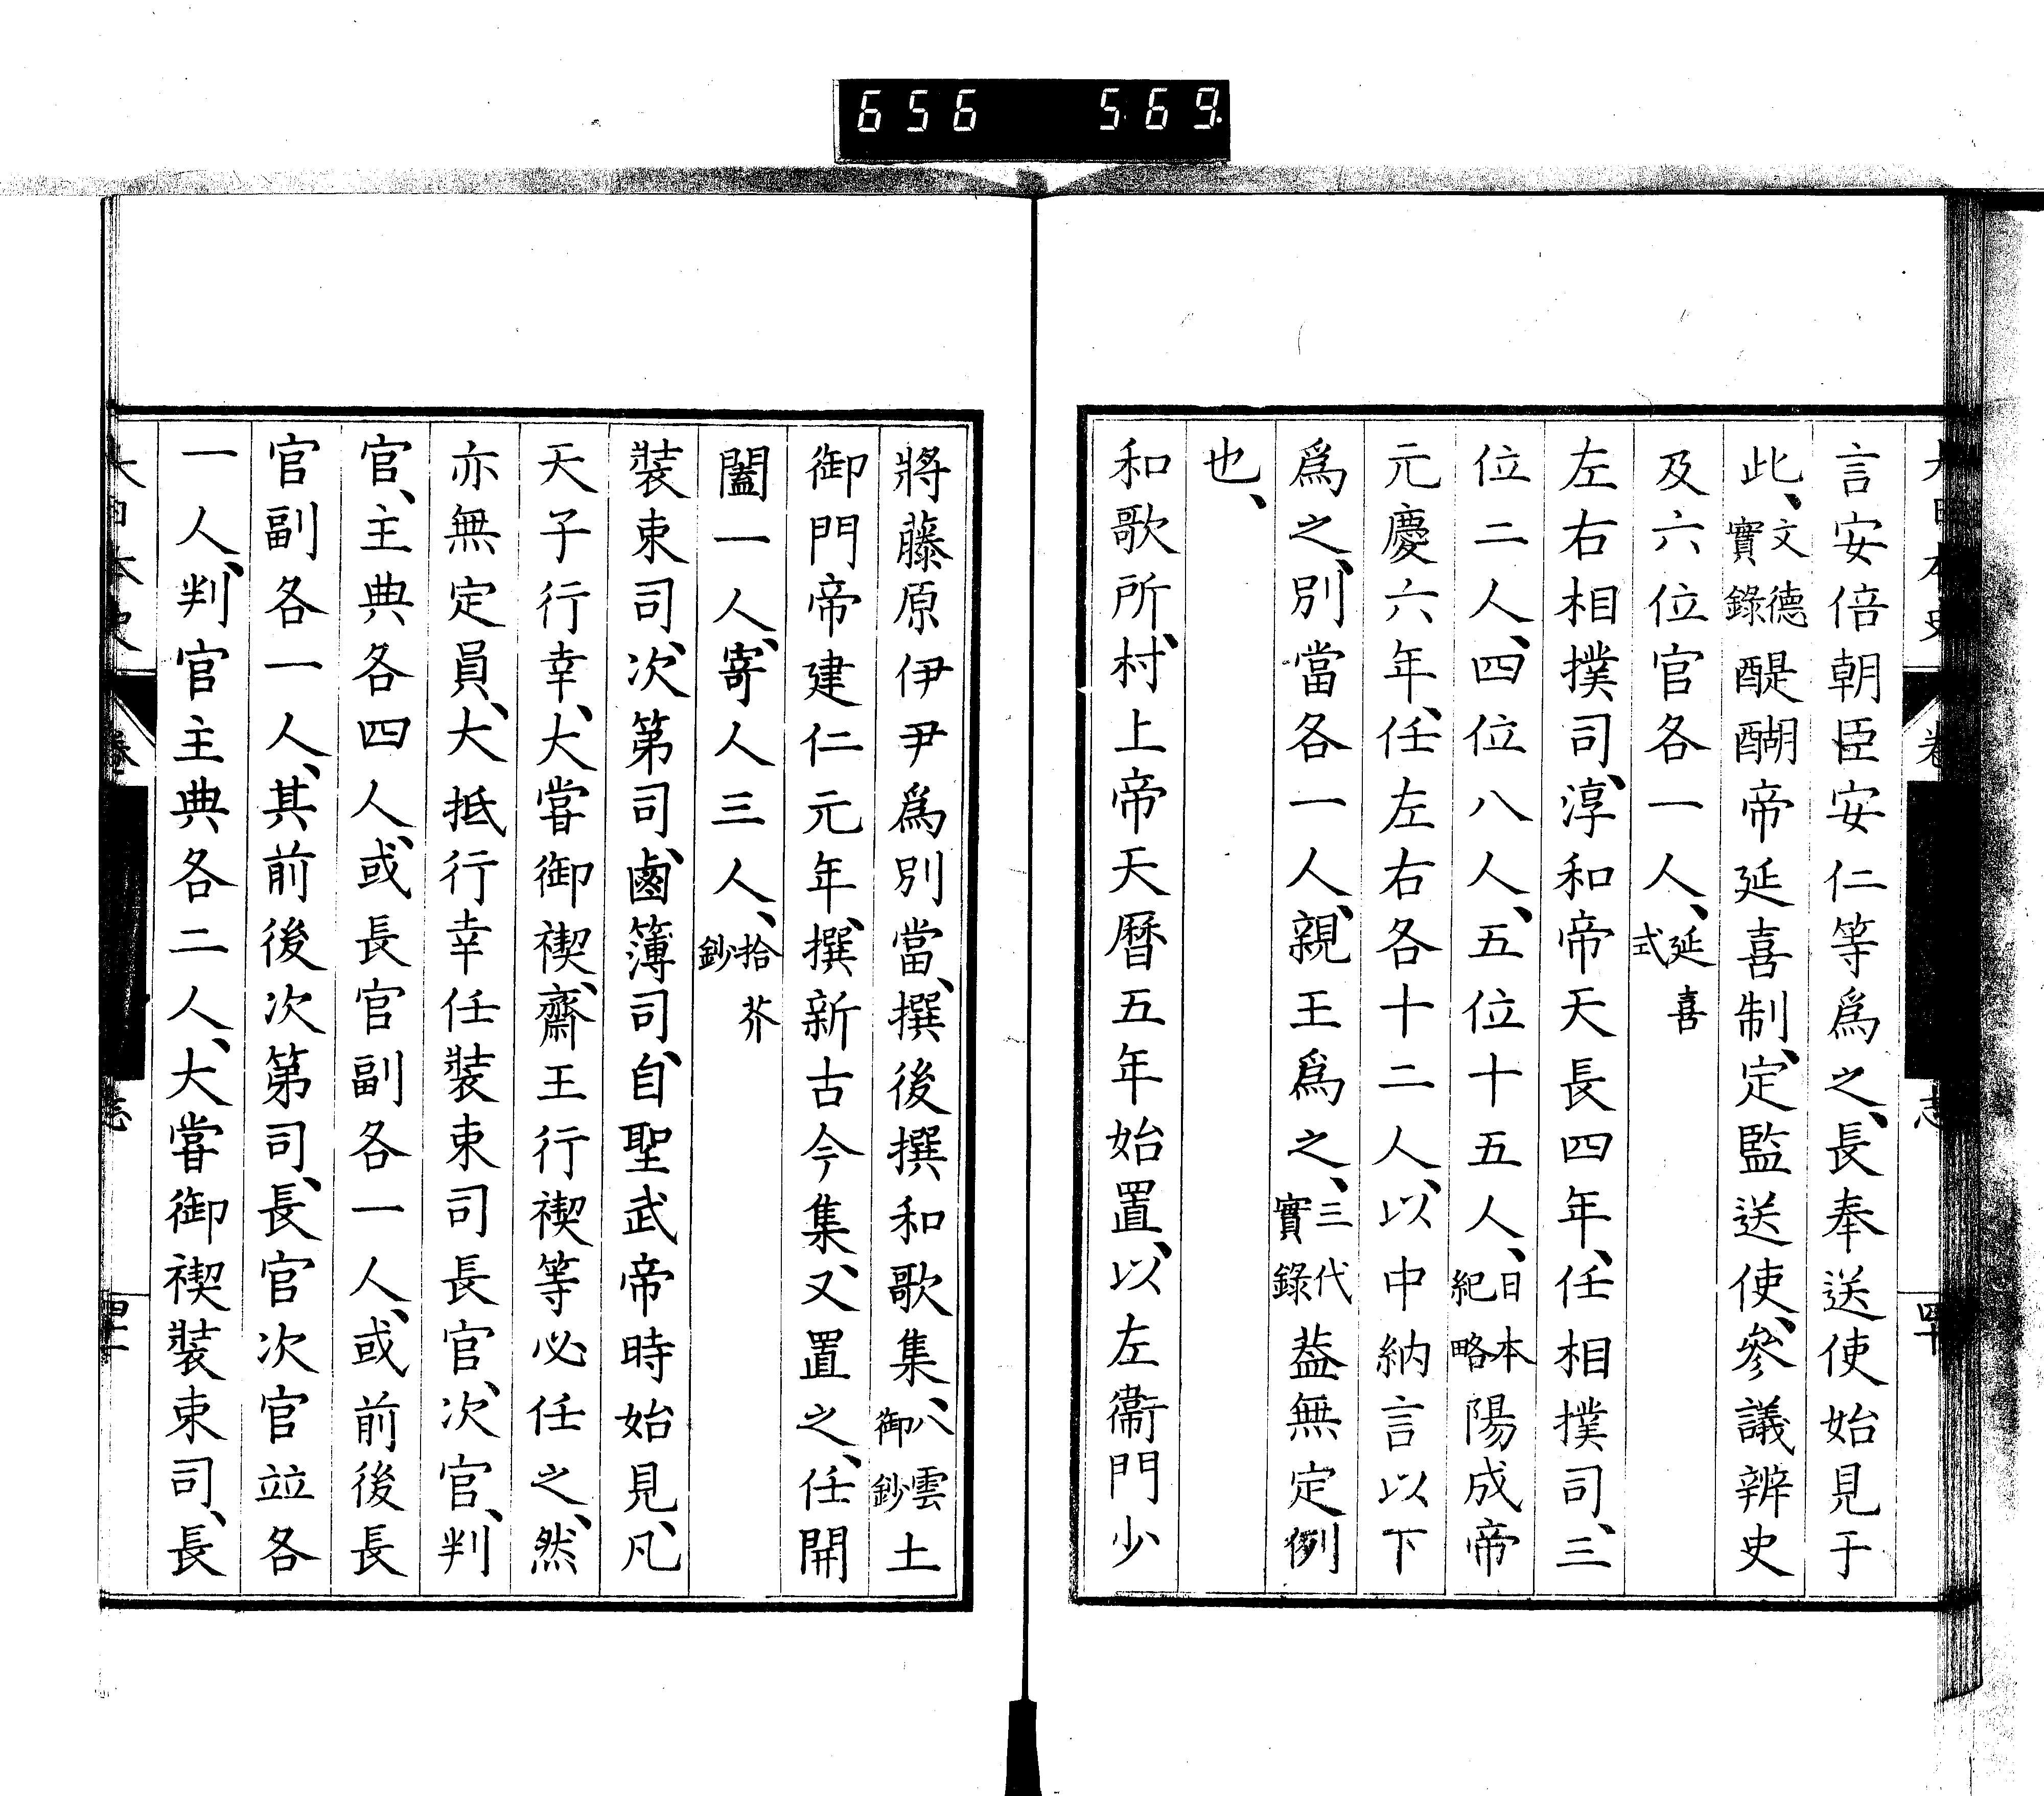 656 569
言安倍朝臣安仁等爲之、長奉送使始見于
此、文德實錄醍醐帝延喜制、定監送使、參議辨史
及六位官各一人、延喜式
左右相撲司、淳和帝天長四年、任相撲司、三
位二人、四位八人、五位十五人、日本紀略陽成帝
元慶六年、任左右各十二人、以中納言以下
爲之、別當各一人、親王爲之、三代實錄葢無定例
也、
和歌所、村上帝天曆五年始置、以左衞門少
將藤原伊尹爲別當、撰後撰和歌集、八雲御鈔土
御門帝建仁元年、撰新古今集、又置之、任開
闔一人、寄人三人、拾芥鈔
裝束司、次第司、鹵簿司、自聖武帝時始見、凡
天子行幸、大嘗御禊、齋王行禊等必任之、然
亦無定員、大抵行幸任裝束司長官、次官、判
官、主典各四人、或長官副各一人、或前後長
官副各一人、其前後次第司、長官次官竝各
一人、判官主典各二人、大嘗御禊裝束司、長
大日本史 卷 志